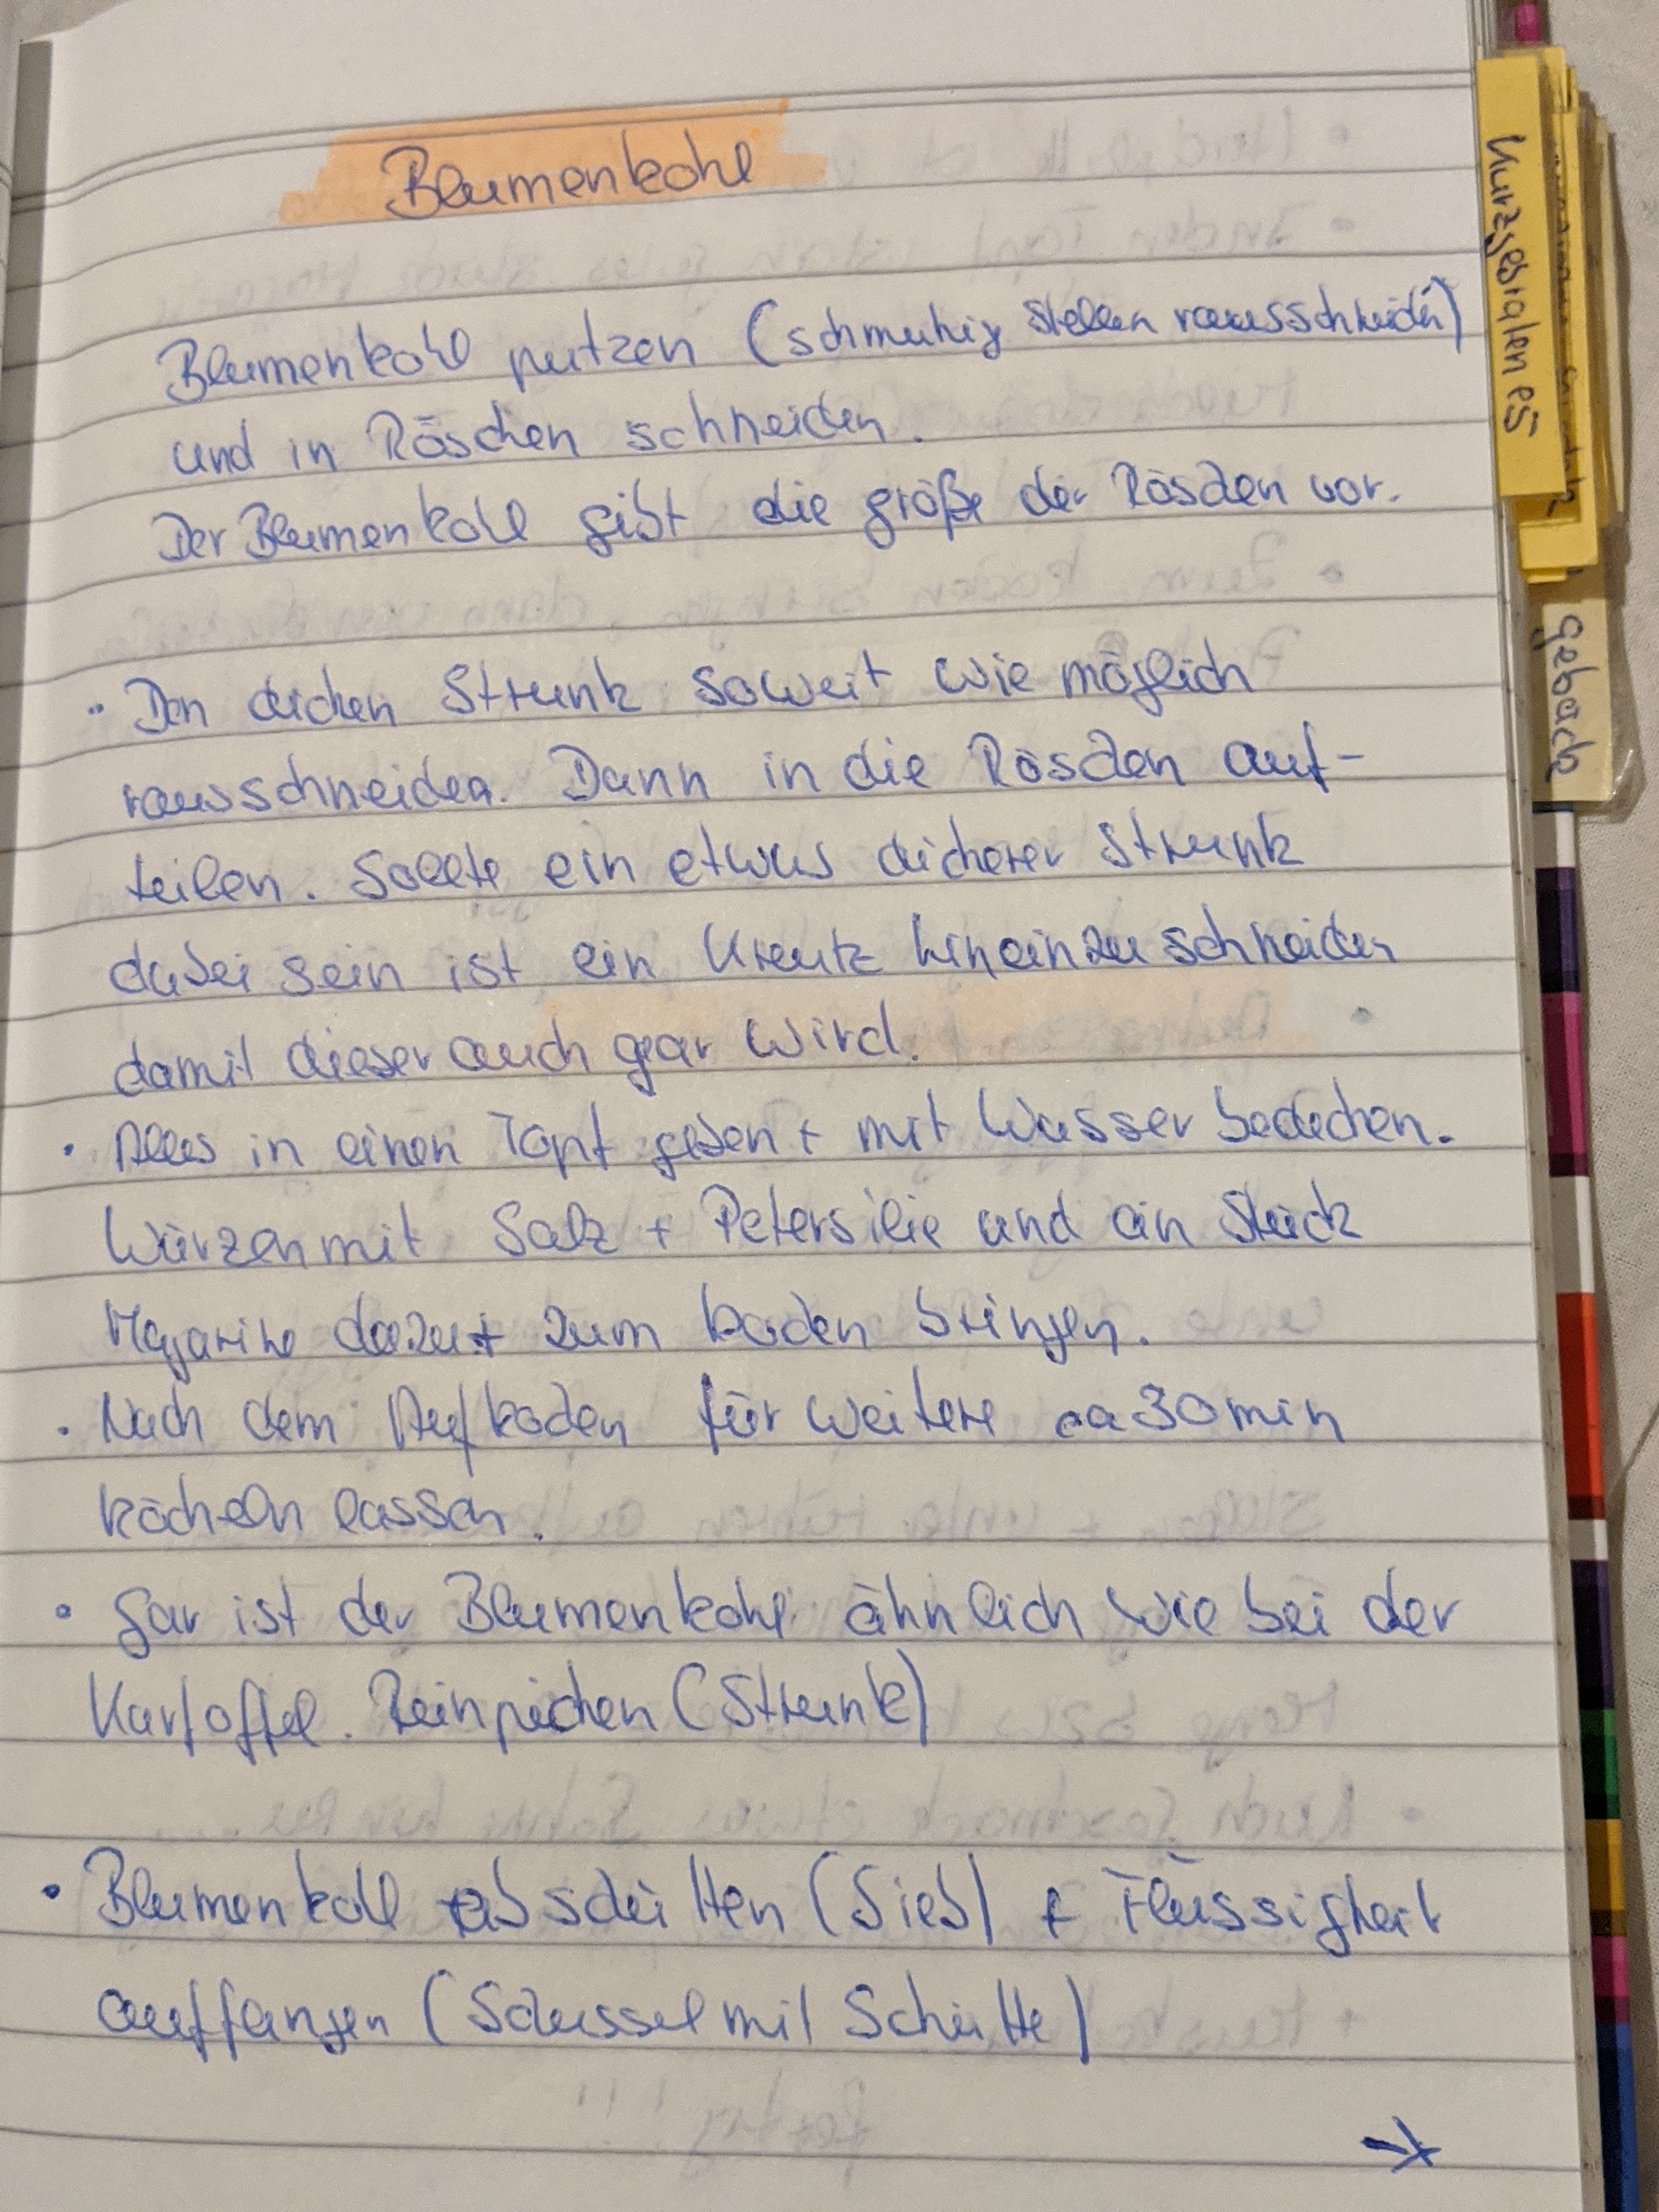 Blumenkohl
Blumenkohl putzen (schmutzig Stellen rausschneiden)
und in Röschen schneiden.
Der Blumenkohl gibt die größe der Röschen vor.
• Den dicken Strunk soweit wie möglich
rausschneiden. Dann in die Röschen auf-
teilen. Sollte ein etwas dickerer Strunk
dabei sein ist ein Kreutz hineinzuschneiden
damit dieser auch gar wird.
• Alles in einen Topf geben + mit Wasser bedecken.
Würzen mit Salz + Petersilie und ein Stück
Magarine dazu + zum kochen bringen.
• Nach dem Aufkochen für weitere ca 30 min
köcheln lassen.
• Gar ist der Blumenkohl ähnlich wie bei der
Kartoffel. Reinpicken (Strunk)
• Blumenkohl abschütten (Sieb) + Flüssigkeit
auffangen (Schüssel mit Schütte)
→
Kurzgebratenes
Gebäck